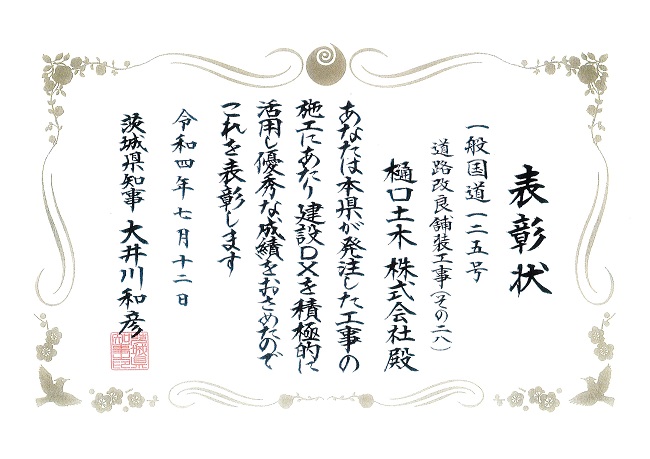 表彰状
一般国道一二五号
道路改良舗装工事(その二八)
樋口土木株式会社殿
あなたは本県が発注した工事の
施工にあたり建設DXを積極的に
活用し優秀な成績をおさめたので
これを表彰します
令和四年七月十二日
茨城県知事 大井川和彦
茨城県知事之印